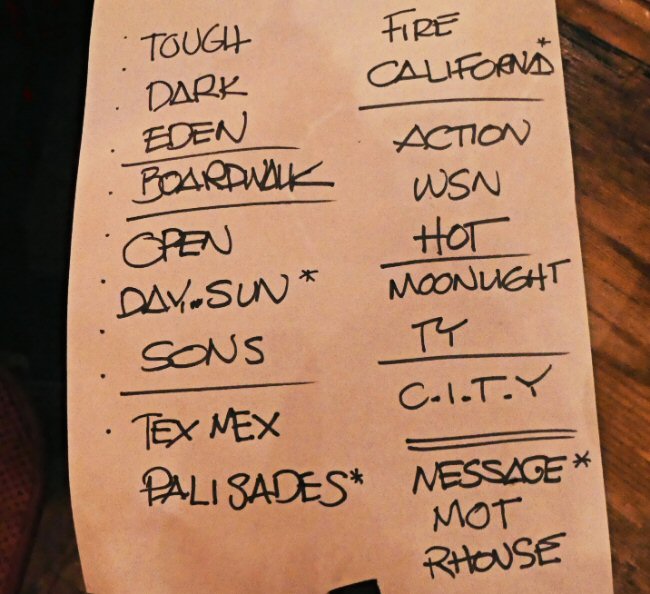 TOUGH
DARK
EDEN
BOARDWALK
OPEN
DAY...SUN *
SONS
TEX MEX
PALISADES*
FIRE
CALIFORNIA*
ACTION
WSN
HOT
MOONLIGHT
TY
C.I.T.Y
MESSAGE*
MOT
RHOUSE